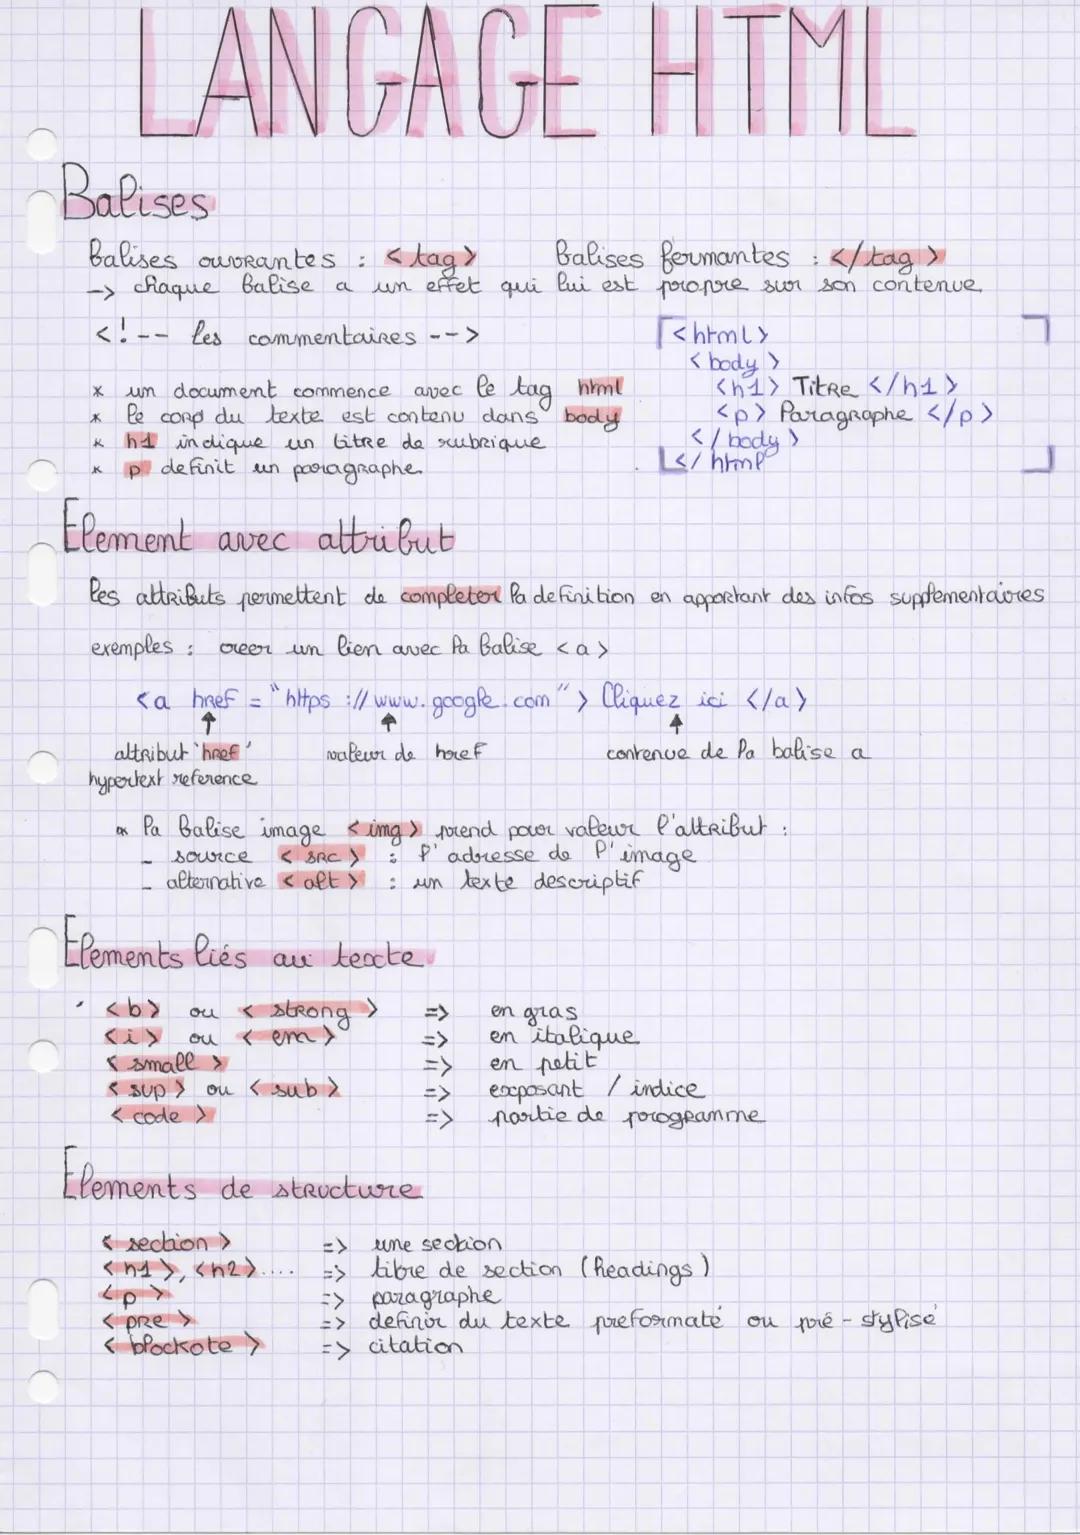 LANGAGE HTML
Balises
Balises ouvrantes : <tag> Balises fermantes : </tag>
-> chaque balise a un effet qui lui est propre sur son contenue
<!-- les commentaires -->
* un document commence avec le tag html
* le corp du texte est contenu dans body
* h1 indique un titre de rubrique
* p definit un paragraphe
<html>
<body>
<h1> Titre </h1>
<p> Paragraphe </p>
</body>
</html
Element avec attribut
les attributs permettent de completer la definition en apportant des infos supplementaires
exemples : creer un lien avec la balise <a>
<a href = "https ://www.google.com"> Cliquez ici </a>
↑ ↑ ↑
attribut 'href' valeur de href contenue de la balise a
hypertext reference
* la balise image <img> prend pour valeur l'attribut :
- source <src> : l'adresse de l'image
- alternative <alt> : un texte descriptif
Elements liés au texte
<b> ou <strong> => en gras
<i> ou <em> => en italique
<small> => en petit
<sup> ou <sub> => exposant / indice
<code> => partie de programme
Elements de structure
<section> => une section
<h1>, <h2>.... => titre de section (headings)
<p> => paragraphe
<pre> => definir du texte preformaté ou pré-stylisé
<blockote> => citation